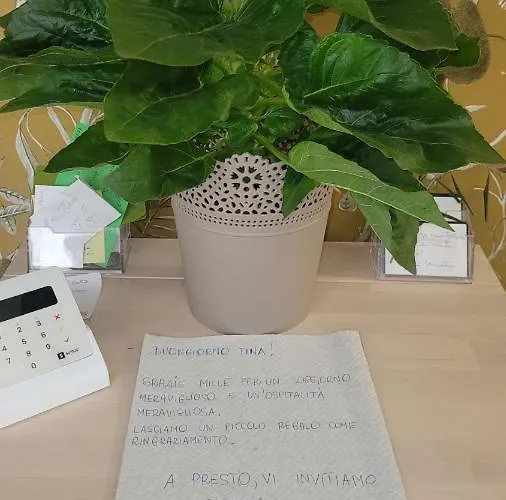 BUONGIORNO TINA!
GRAZIE MILLE PER UN SOGGIORNO
MERAVIGLIOSO E UN'OSPITALITÀ
MERAVIGLIOSA.
LASCIAMO UN PICCOLO REGALO COME
RINGRAZIAMENTO.
A PRESTO, VI INVITIAMO